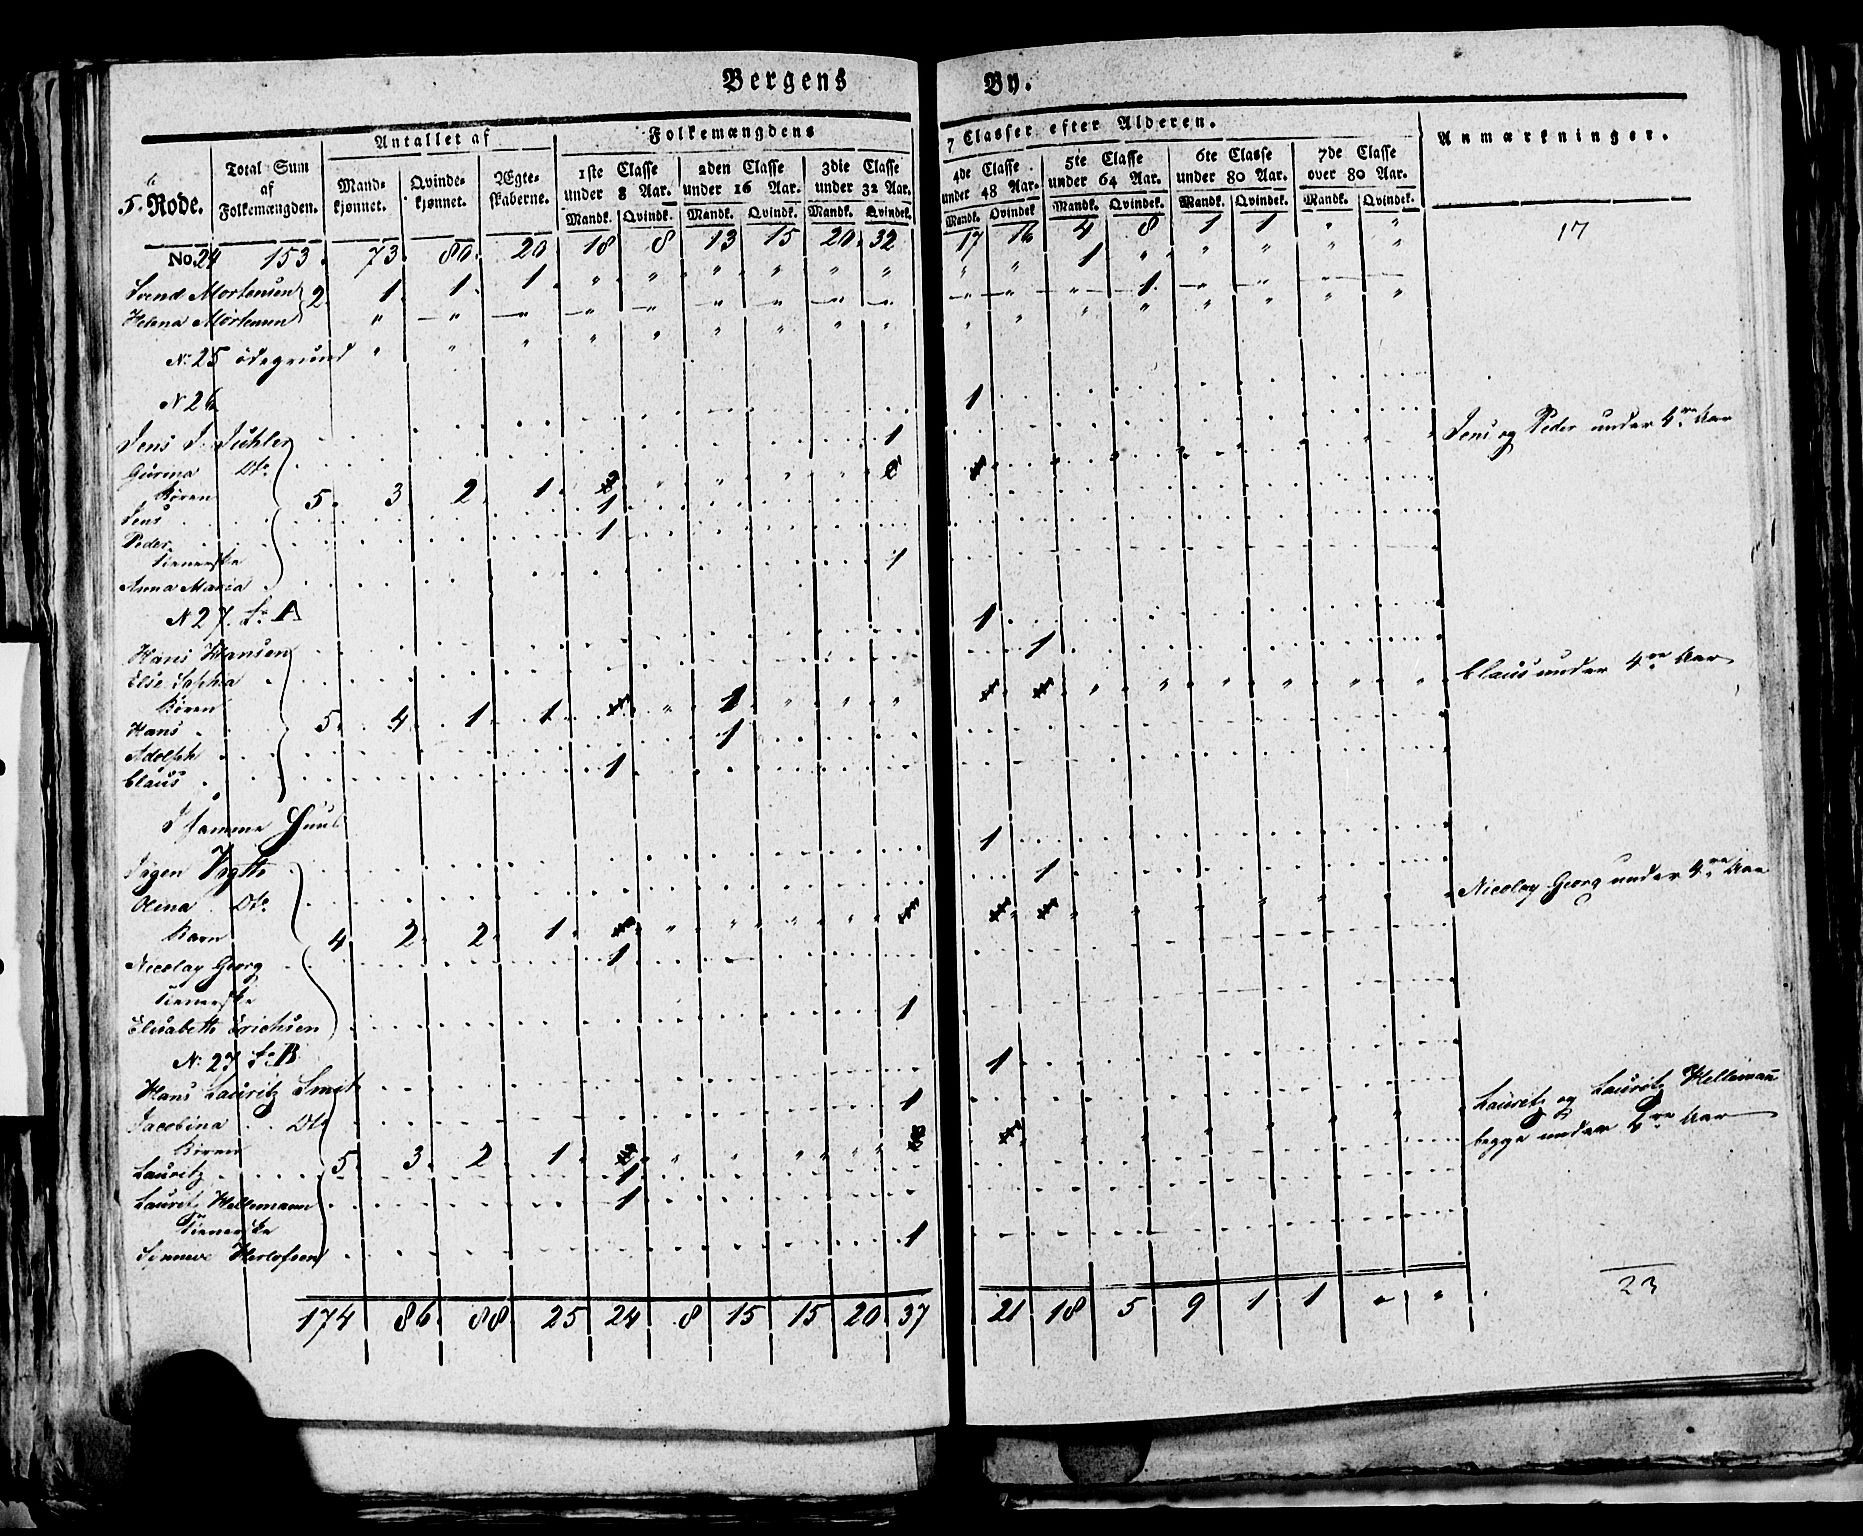 Bergens By.
Antallet af Folkemængdens 7 Classer efter Alderen. Anmærkninger.
5te Rode. Total Sum af Folkemængden. Mandkjønnet. Qvindekjønnet. Ægteskaberne. 1ste Classe under 8 Aar. 2den Classe under 16 Aar. 3die Classe under 32 Aar. 4de Classe under 48 Aar. 5te Classe under 64 Aar. 6te Classe under 80 Aar. 7de Classe over 80 Aar.
Mandk. Qvindk. Mandk. Qvindk. Mandk. Qvindek. Mandk. Qvindek. Mandk. Qvindek. Mandk. Qvindek. Mandk. Qvindek.
No. 24 153. 73. 80. 20 18 8 13 15 20 32 17 16 4 8 1 1 " " 17
Svend Mortensen 2. 1. 1. 1. " " " " " " " " 1 " " " " "
Helena Mortensen " " " " " " " " " " " " 1. " " " "
No 25 ödegrund " " " " " " " " " " " " " " " " "
No 26
Jens J. 1
Dto 1 Jens og Peder under 4re Aar
Børen 5. 3 2. 1
Jens 1
Peder 1
Tieneeske
Anna Maria 1
No 27. Lr A
Hans Hansen 1
Else Sophia 1
Børen 5. 4. 1. 1 Claus under 4re Aar
Hans 1
Adolph 1
Claus 1
I samme Huus
1
Olina Dto 1
Barn 4 2. 2. 1 Nicolay Georg under 4re Aar
Nicolay Georg 1
Tieneeske
Elisabeth Erichsen 1
No. 27 Lr B
Hans Lauritz 1
Jacobina Dto 1 Lauritz og Lauritz Hellemann
Børen 5 3. 2. 1. begge under 4re Aar
Lauritz 1
Lauritz Hellemann 1
Tieneeske
Herlofsen 1
174 86. 88 25 24 8 15 15 20 37 21 18 5 9 1 1 " " 23